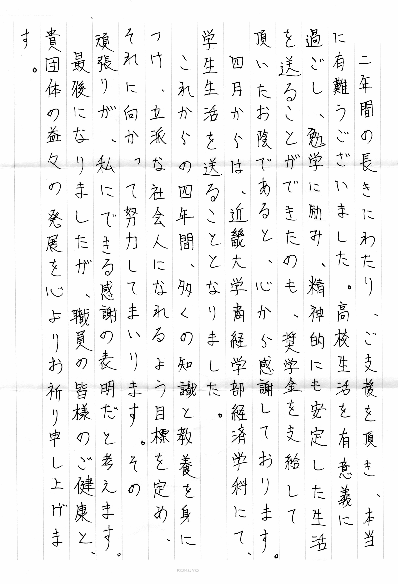 二年間の長きにわたり、ご支援を頂き、本当
に有難うございました。高校生活を有意義に
過ごし、勉学に励み、精神的にも安定した生活
を送ることができたのも、奨学金を支給して
頂いたお陰であると、心から感謝しております。
四月からは、近畿大学商経学部経済学科にて、
学生生活を送ることとなりました。
これからの四年間、多くの知識と教養を身に
つけ、立派な社会人になれるよう目標を定め、
それに向かって努力してまいります。その
頑張りが、私にできる感謝の表明だと考えます。
最後になりましたが、職員の皆様のご健康と、
貴団体の益々の発展を心よりお祈り申し上げま
す。